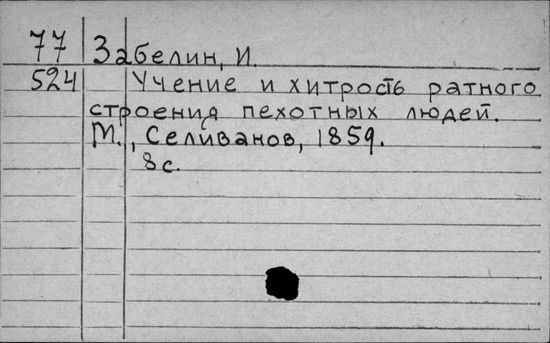 77 Забелин, И.
524 Учение и хитрость ратного
строения пехотных людей.
М., Селиванов, 1859.
8 с.